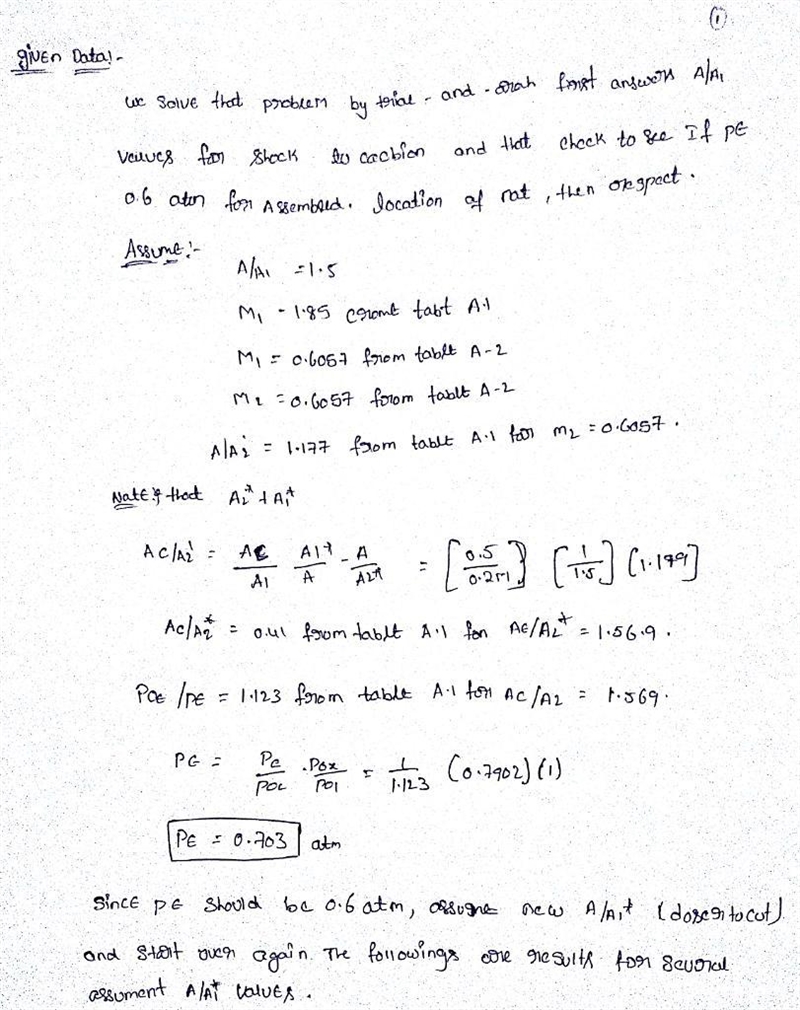 ①
given Data:-
we solve that problem by trial - and - orah first answers A/A1
values for shock to cacbion and that check to see If PE
0.6 atm for Assembled. location of rat, then respect.
Assume:-
A/A1 = 1.5
M1 - 1.85 corome tabt A.1
M1 = 0.6057 from table A-2
M2 = 0.6057 forom table A-2
A/A2 = 1.177 from table A.1 for m2 = 0.6057.
Note:- that A2* ≠ A1*
AC/A2 = AE/A1 A1*/A - A/A2* = [0.5/0.251] [1/1.5] (1.179]
Ac/A2* = 0.41 from table A.1 for AE/A2* = 1.56.9.
POE/PE = 1.123 from table A.1 for AC/A2 = 1.569.
PE = Pe/POL . POX/PO1 = 1/1.123 (0.7902) (1)
PE = 0.703 atm
Since PE should be 0.6 atm, assume new A/A1* (doser to cut)
and start over again. The followings are results for several
assument A/A1* values.